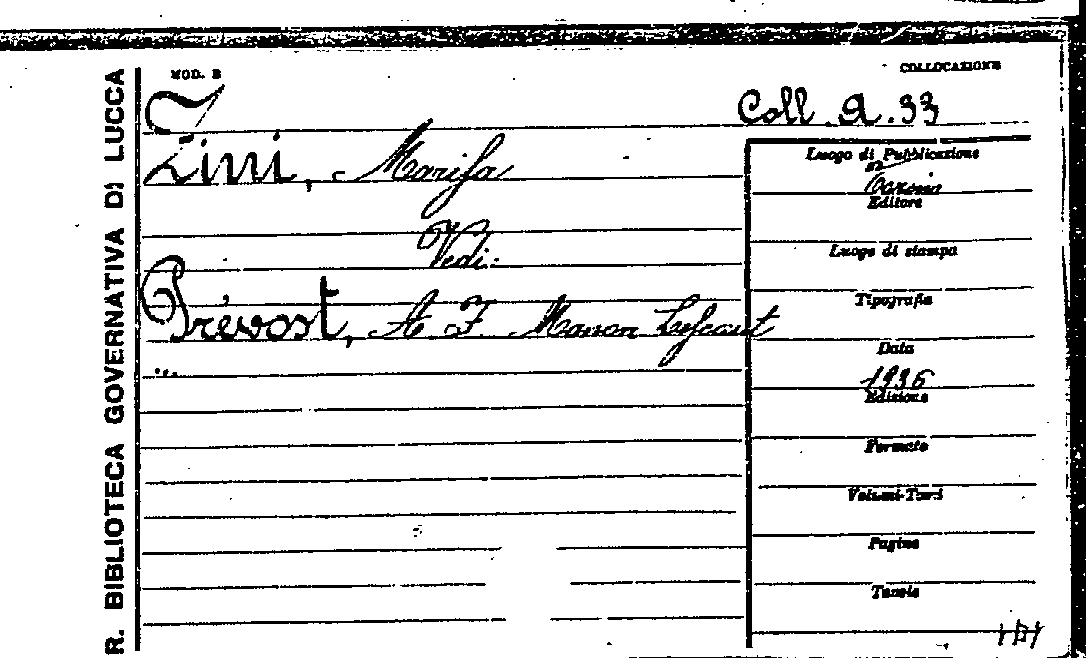 R. BIBLIOTECA GOVERNATIVA DI LUCCA
MOD. B
COLLOCAZIONE
Coll. A. 33
Zini, Marisa
Vedi:
Prévost, A F Manon Lescaut
...
Luogo di Pubblicazione
Editore
Luogo di stampa
Tipografia
Data
1936
Edizione
Formato
Volumi-Tomi
Pagine
Tavole